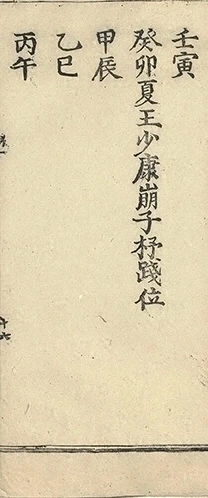 壬寅
癸卯夏王少康崩子杼踐位
甲辰
乙巳
丙午